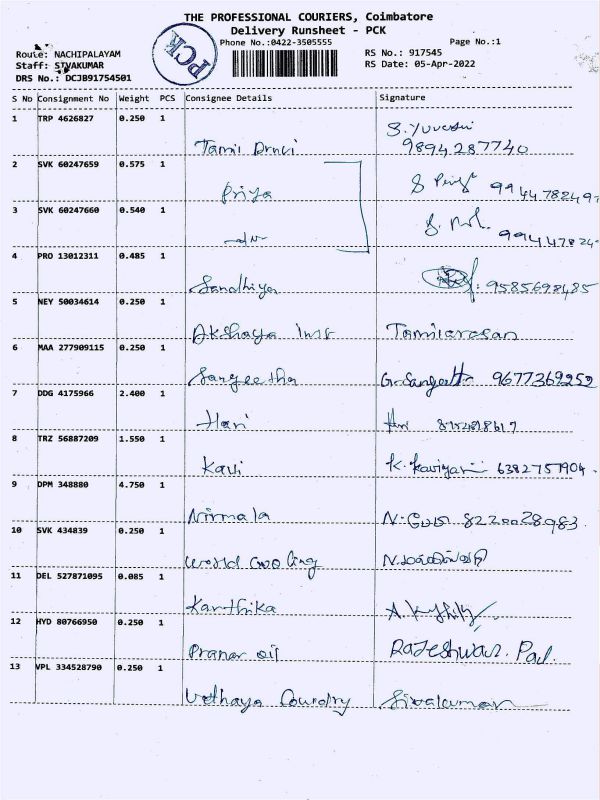 THE PROFESSIONAL COURIERS, Coimbatore
Delivery Runsheet - PCK
Phone No.:0422-3505555
Page No.:1
PCK
Route: NACHIPALAYAM
RS No.: 917545
Staff: SIVAKUMAR
RS Date: 05-Apr-2022
DRS No.: DCJB91754501
S No Consignment No Weight PCS Consignee Details Signature
1 TRP 4626827 0.250 1
9894287740
2 SVK 60247659 0.575 1
Priya
3 SVK 60247660 0.540 1
4 PRO 13012311 0.485 1
Sandhiya 9585698485
5 NEY 50034614 0.250 1
Akshaya Tamilarasan
6 MAA 277909115 0.250 1
Sangeetha G. Sangeetha 9677369252
7 DDG 4175966 2.400 1
Hari
8 TRZ 56887209 1.550 1
Kavi 6382757904
9 DPM 348880 4.750 1
Nirmala 8220028983
10 SVK 434839 0.250 1
World cooling
11 DEL 527871095 0.085 1
Karthika
12 HYD 80766950 0.250 1
Pranav oil RAJeshwari. Pal.
13 VPL 334528790 0.250 1
Sivakumar